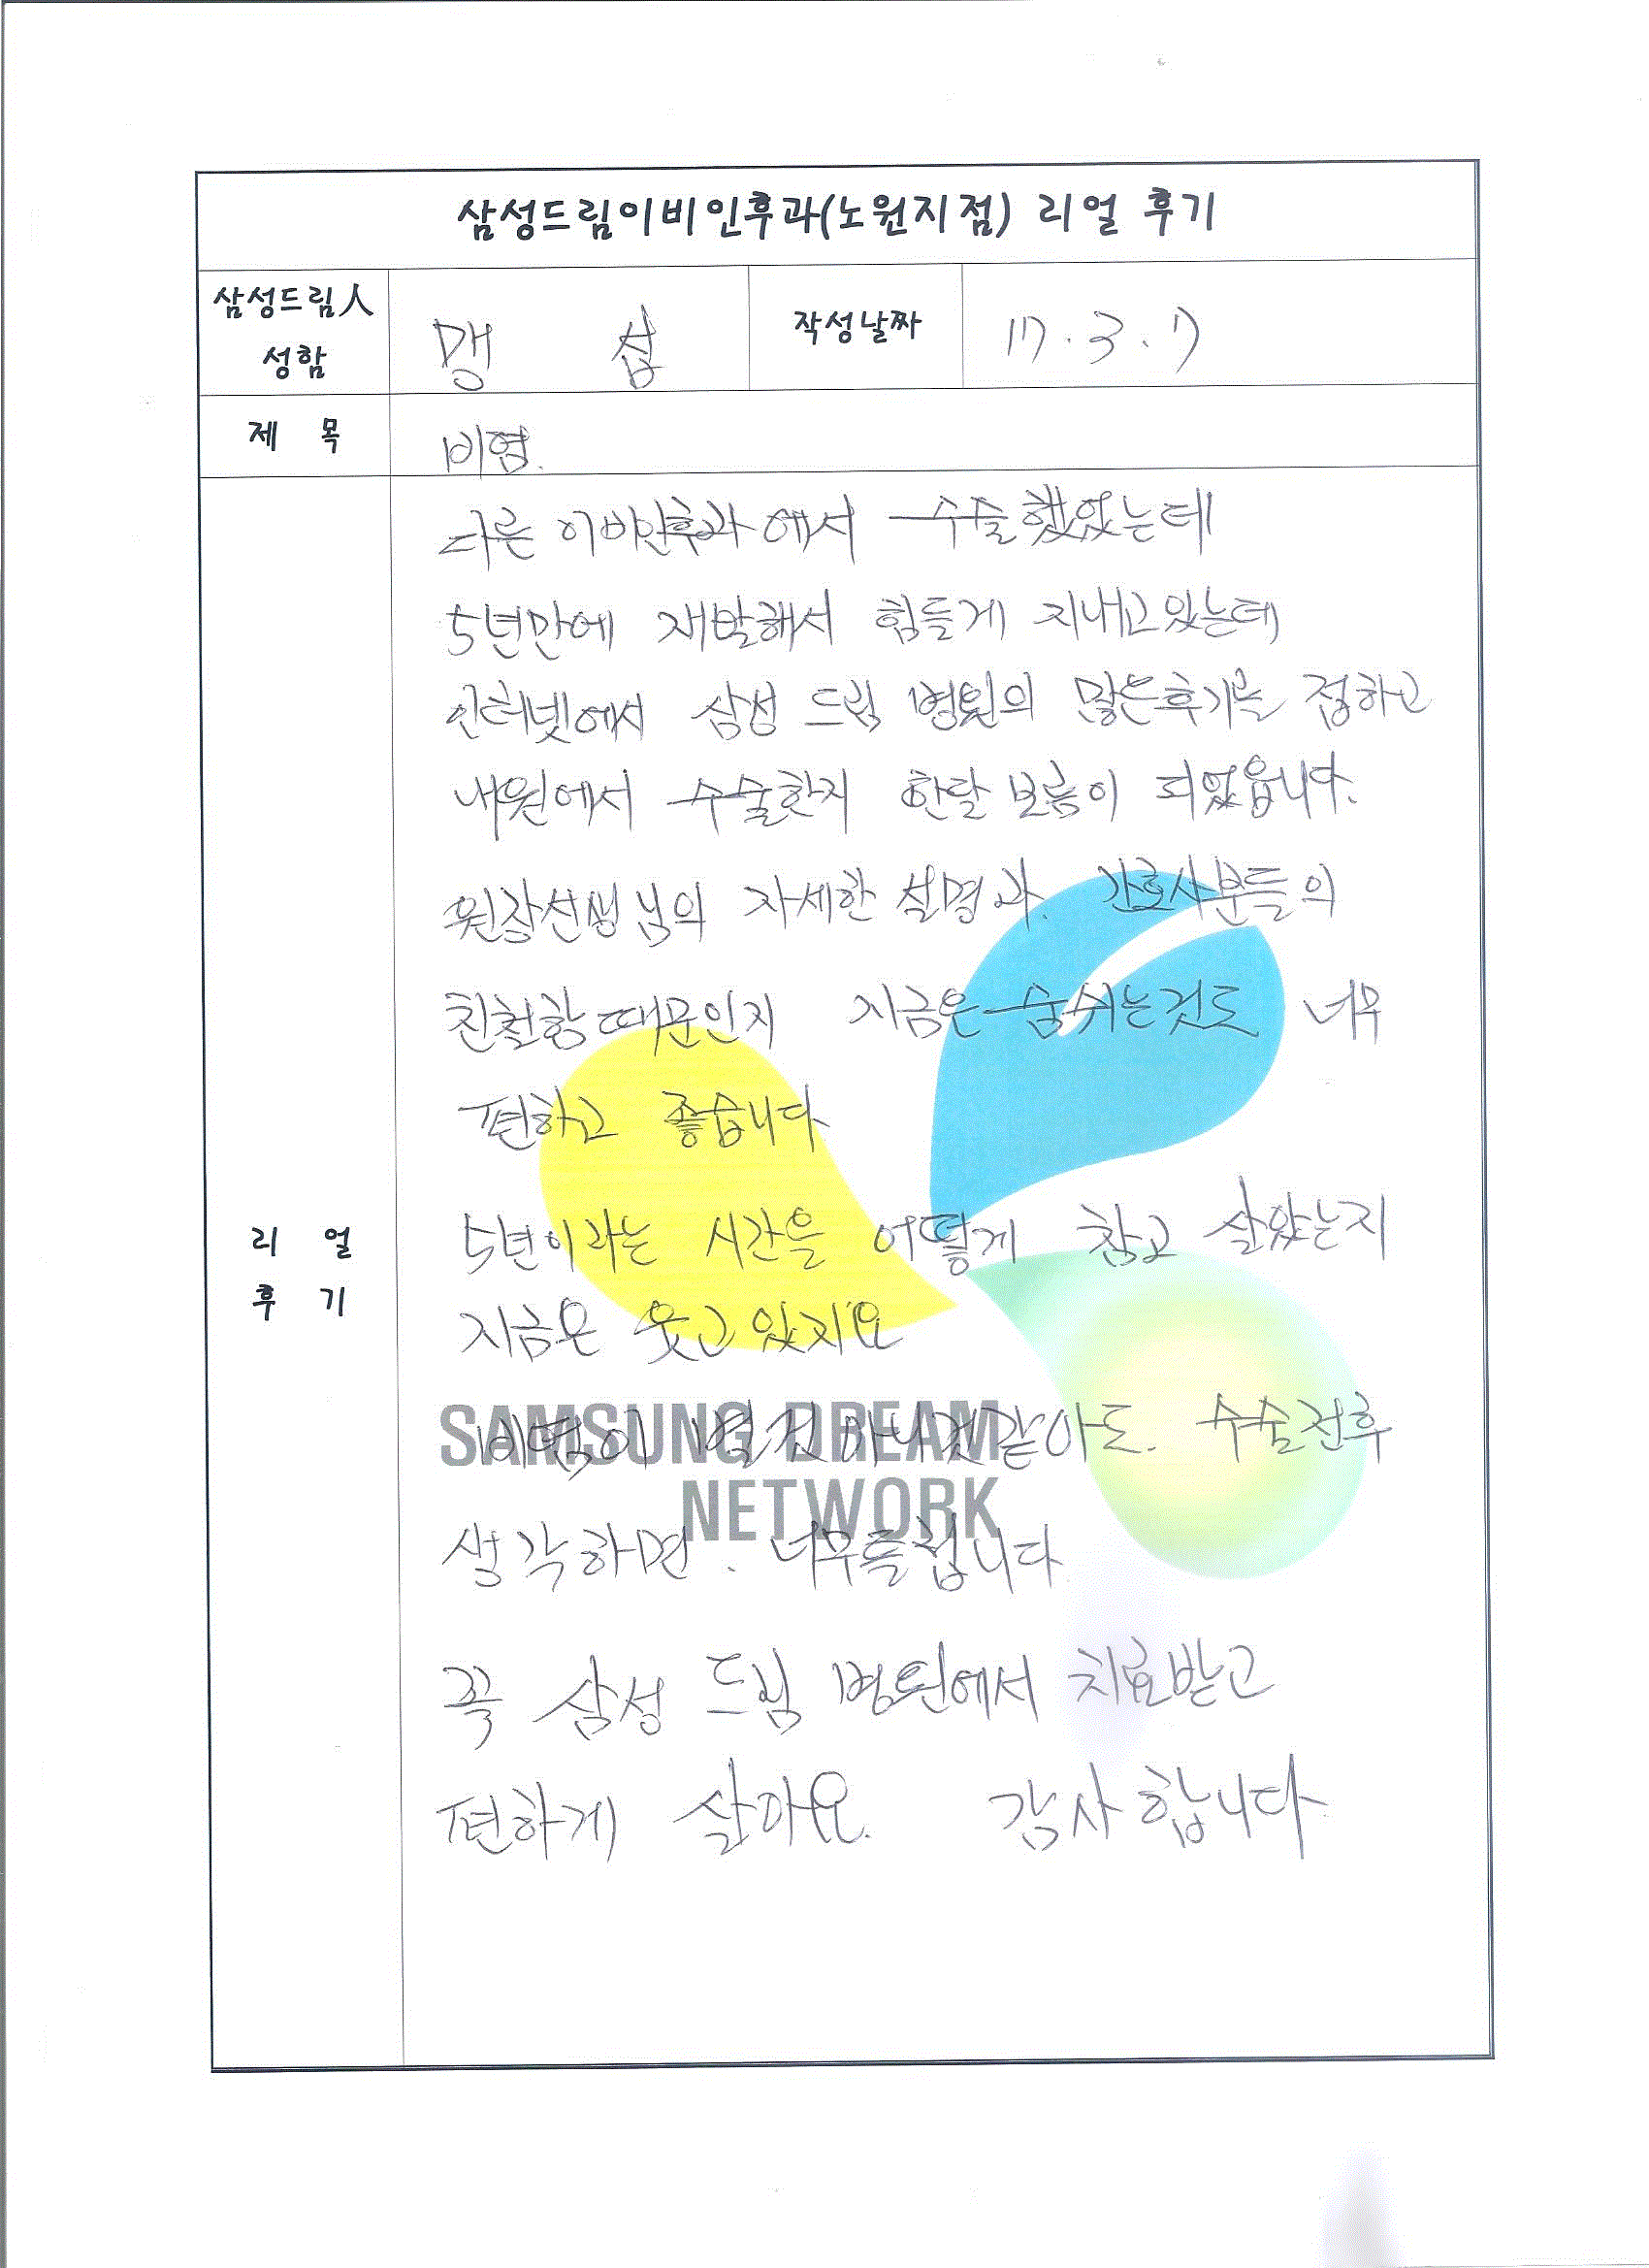 삼성드림이비인후과(노원지점) 리얼 후기
삼성드림人 성함
맹 섭
작성날짜
17.3.7
제 목
비염.
리 얼 후 기
다른 이비인후과에서 수술했었는데
5년만에 재발해서 힘들게 지내고있는데
인터넷에서 삼성 드림 병원의 많은후기를 접하고
내원에서 수술한지 한달 보름이 되었읍니다.
원장선생님의 자세한 설명과. 간호사분들의
친철함때문인지 지금은 숨쉬는것도 너무
편하고 좋습니다
5년이라는 시간을 어떻게 참고 살았는지
지금은 웃고있지요
비염이 별것 아닌것같아도. 수술전후
생각하면. 너무틀립니다
꼭 삼성 드림 병원에서 치료받고
편하게 살아요. 감사합니다
SAMSUNG DREAM
NETWORK